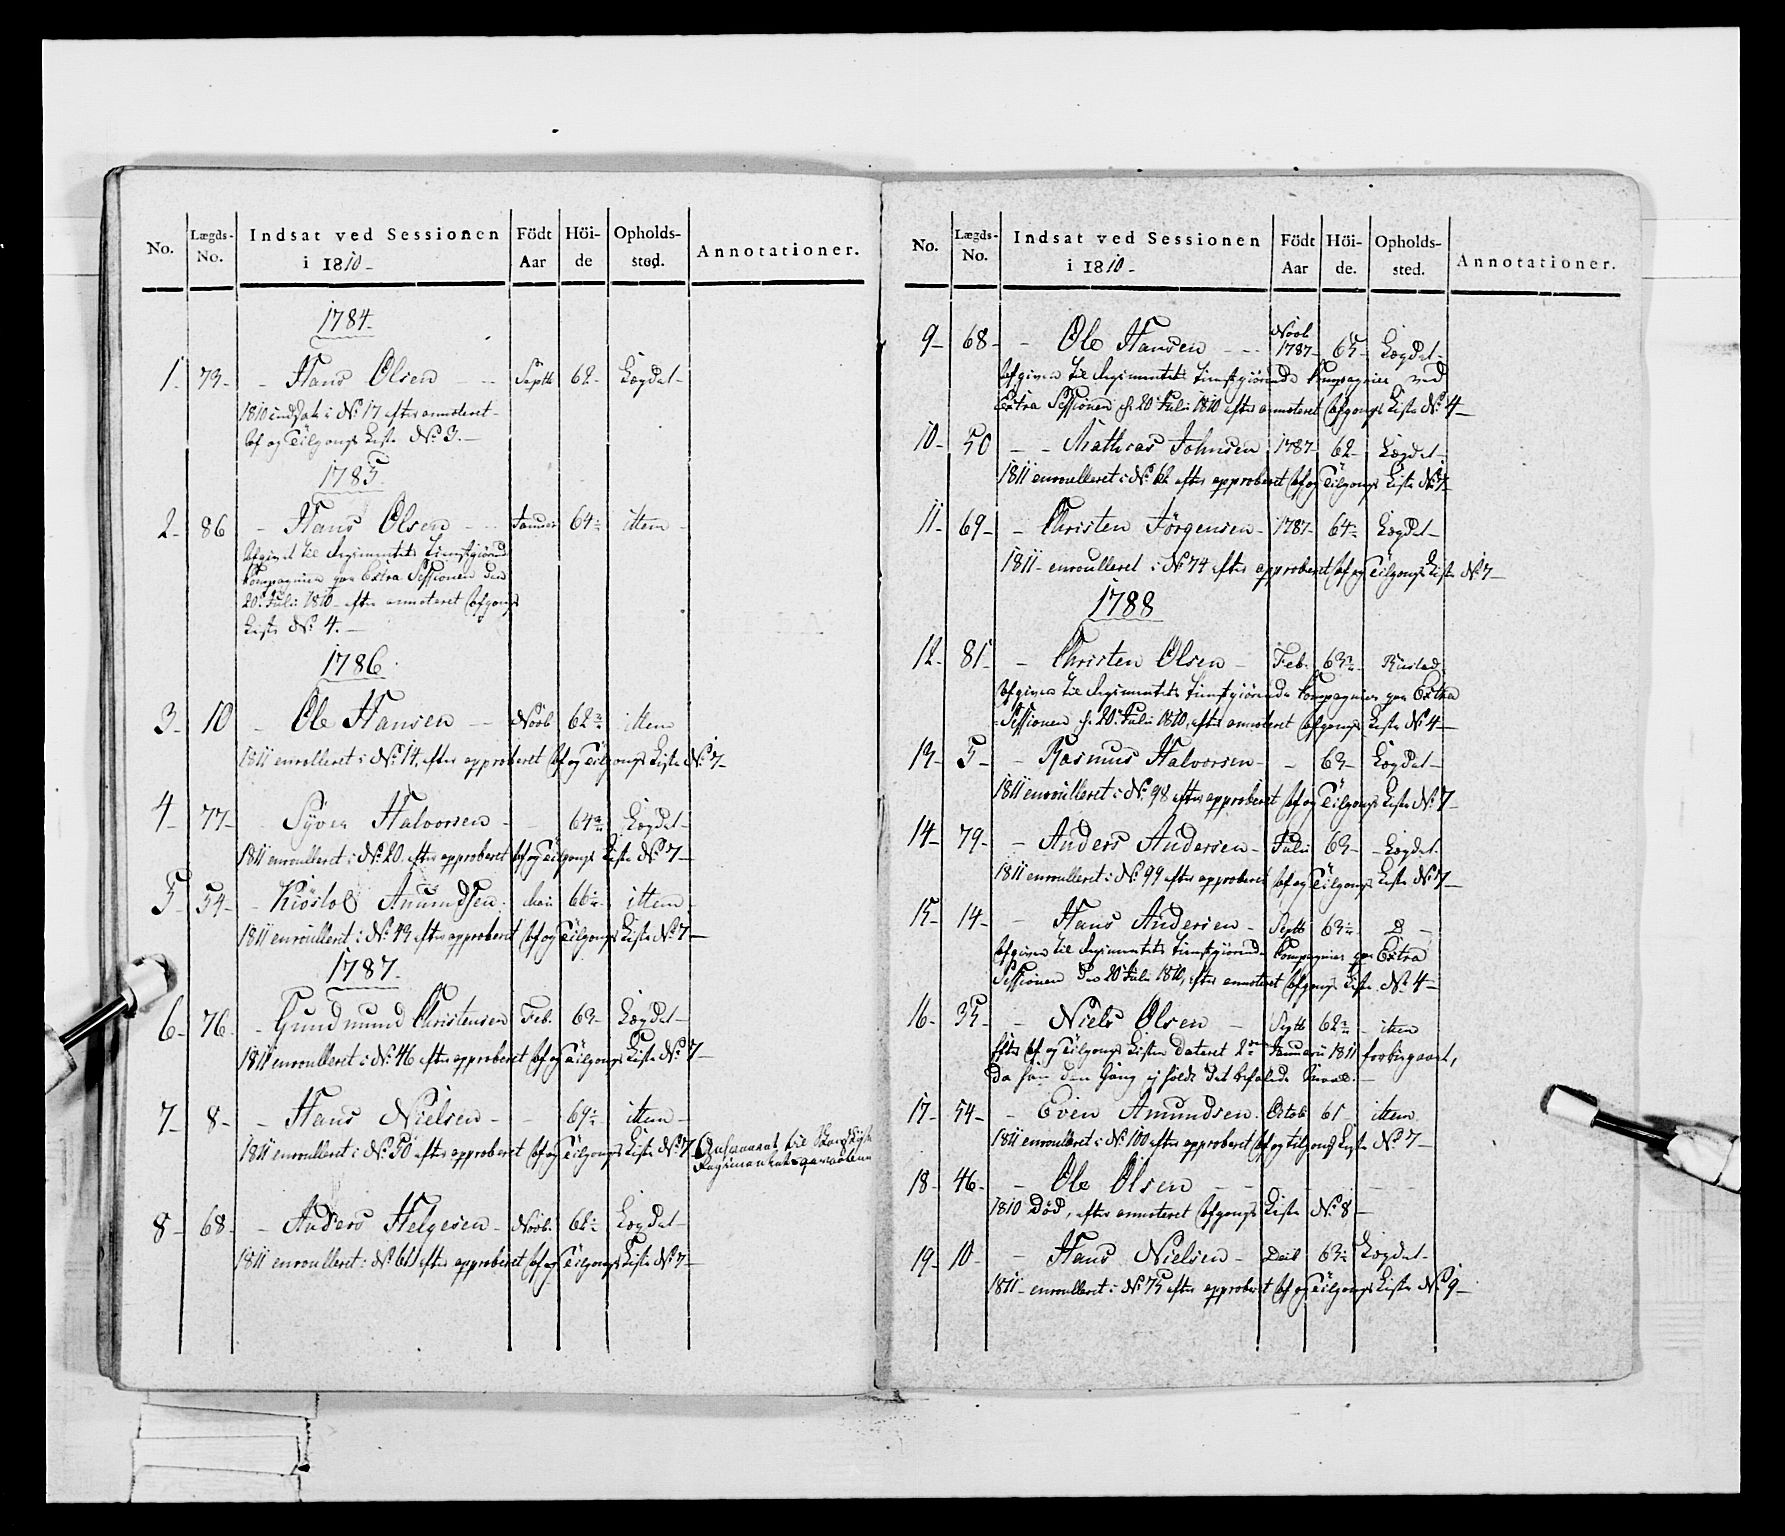 No. Lægds-No. Indsat ved Sessionen i 1810- Födt Aar Höide Opholds-sted. Annotationer.
1784-
1- 73- - Hans Olsen - - Septb 62- Lægdet-
1810 indsat i No. 17 efter annoteret
Af og Tilgangs Liste No. 3.-
1785.
2- 86 - Hans Olsen - - Januar 64- ittem -
Afgivet til Regimentets tienstgiørende
Kompagnier paa Extra Sessionen den
20. Juli 1810 - efter annoteret Afgangs
Liste No. 4.-
1786.
3- 10 - Ole Hansen - - Novb 62 ittem
1811 enrolleret i No. 14, efter approberet Af og Tilgangs Liste No. 7-
4- 77- - Syver Halvorsen - 64 Lægdet-
1811 enroulleret i No. 20. efter approberet Af og Tilgangs Liste No. 7-
5- 54- - Kiöstol Amundsen. Mai 60 ittem -
1811 enroulleret i No. 43 efter approberet Af og Tilgangs Liste No. 7-
1787.
6- 76- - Gundmund Christensen Feb. 63- Lægdet-
1811 enroulleret i No. 46 efter approberet Af og Tilgangs Liste No. 7-
7- 8- - Hans Nielsen - - ittem-
1811 enroulleret i No. 50 efter approberet Af og Tilgangs Liste No. 7
til
8- 68- - Anders Helgesen - Novb. 62 Lægdet-
1811 enroulleret i No. efter approberet Af og Tilgangs Liste No. 7-
No. Lægds-No. Indsat ved Sessionen i 1810- Födt Aar Höide. Opholds-sted. Annotationer.
9- 68- - Ole Hansen - - Novb 1787- 65- Lægdet-
Afgiven til Regimentets tienstgiørende Kompagnier ved
Extra Sessionen d. 20. Juli 1810 efter annoteret Afgangs Liste No. 4-
10- 50 - - Mathias Johnsen 1787- 62- Lægdet-
1811 enroulleret i No. 62 efter approberet Af og Tilgangs Liste No. 7-
11- 69- - Christen Jörgensen - 1787- 64- Lægdet-
1811- enroulleret i No. 74 efter approberet Af og Tilgangs Liste No. 7-
1788
12- 81- - Christen Olsen - Feb. 63 Rustad
Afgiven til Regimentets tienstgiørende Kompagnier paa Extra
Sessionen d. 20. Juli 1810, efter annoteret Afgangs Liste No. 4-
13- 5- - Rasmus Halvorsen - - 63- Lægdet-
1811 enroulleret i No. 98 efter approberet Af og Tilgangs Liste No. 7-
14- 79- - Anders Andersen - Juli 63- - Lægdet-
1811 enroulleret i No. 99 efter approberet Af og Tilgangs Liste No. 7-
15- 14- - Hans Andersen - Septb 63 D -
Afgiven til Regimentets tienstgiørende Kompagnier paa Extra
Sessionen den 20 Juli 1810, efter annoteret Afgangs Liste No. 4-
16- 35- - Niels Olsen - Septb 62 - ittem
Efter Af og Tilgangs Listen dateret 2den Januarii 1811 forbigaaet,
da han den Gang ej holdt det befalede Maal.-
17- 54- - Even Amundsen. Octob 61 ittem
1811 enroulleret i No. 100 efter approberet Af og tilgangs Liste No. 7-
18- 46- - Ole Olsen - - - - -
1810 Död, efter annoteret Afgangs Liste No. 8-
19- 10- - Hans Nielsen - Decb 63 Lægdet-
1811- enroulleret i No. 75 efter approberet Af og Tilgangs Liste No. 9-